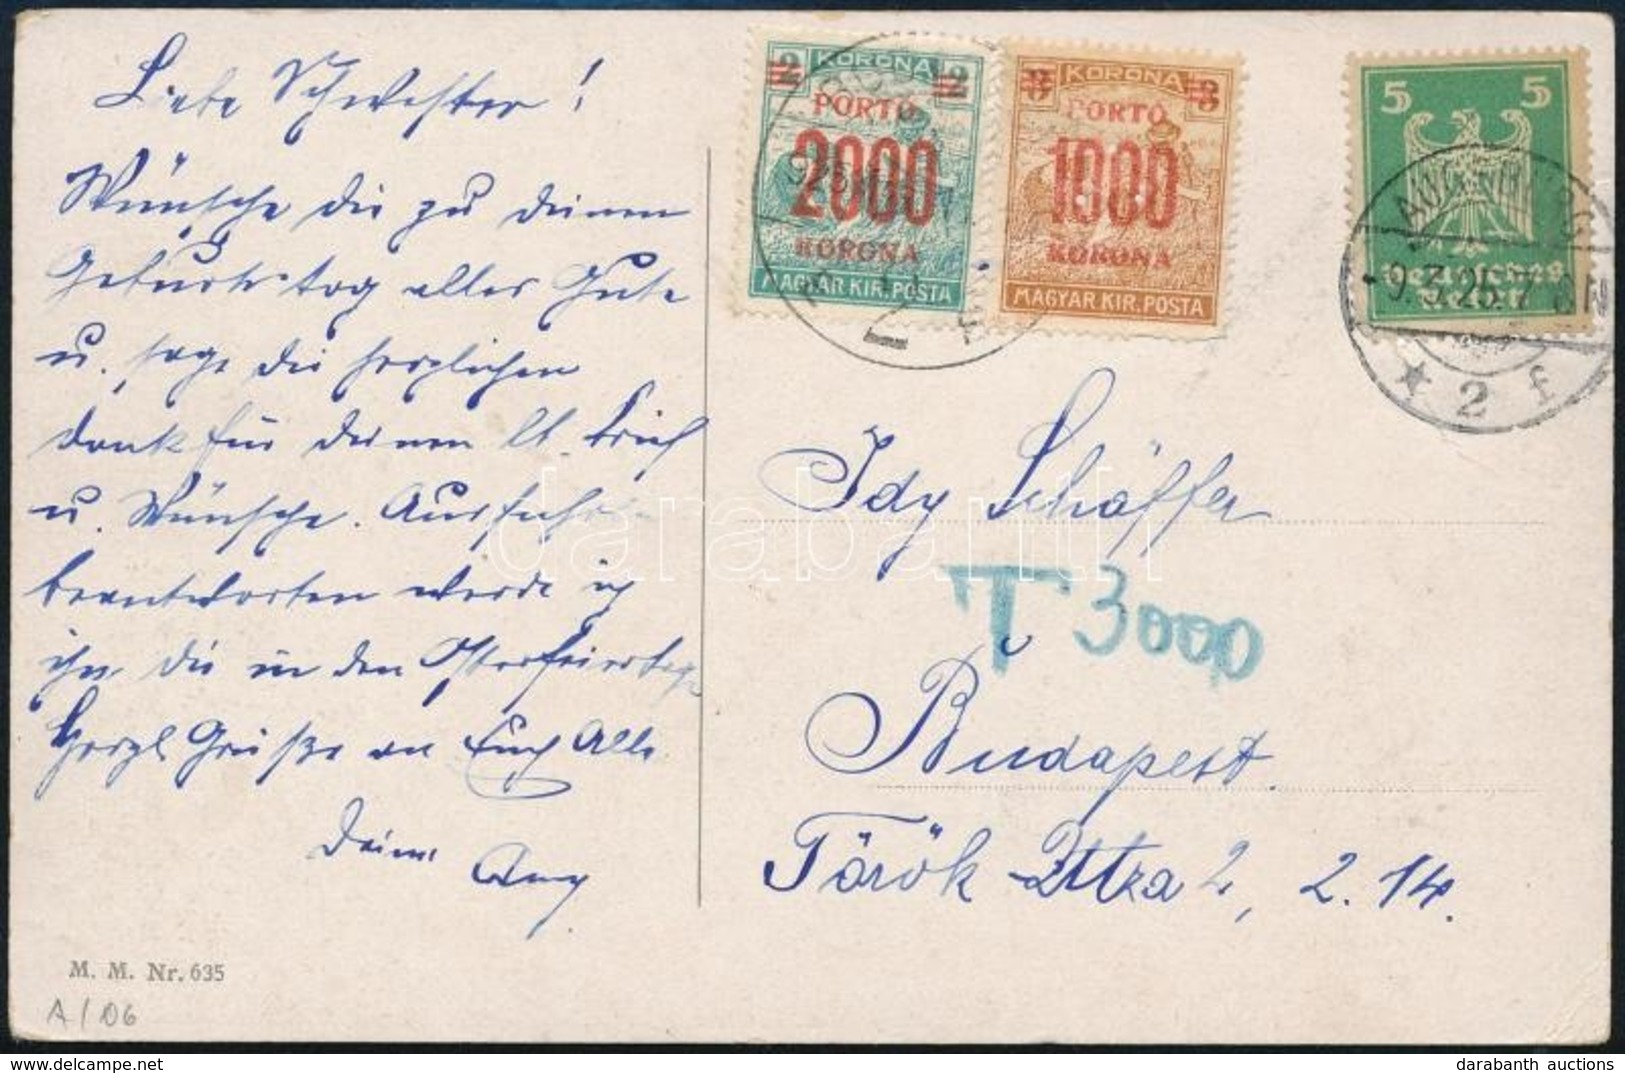 Liebe Schwester!
Wünsche dir zu deinem
Geburtstag alles Gute
u. sage dir herzlichen
dank für deinen lb. Brief
u. Wünsche. Ausführl.
beantworten werde ich
ihn dir in den Osterfeiertagen
Herzl Grüße an Euch Alle
Deine
2 KORONA 2
PORTO
2000
KORONA
MAGYAR KIR. POSTA
3 KORONA 3
PORTO
1000
KORONA
MAGYAR KIR. POSTA
5 5
Deutsches
Reich
9.3.25.7-8N
★ 2 f
Idy Schäffer
T 3000
Budapest.
Török Uttza 2, 2.14.
M. M. Nr. 635
A/06
darabanth
darabanth auctions